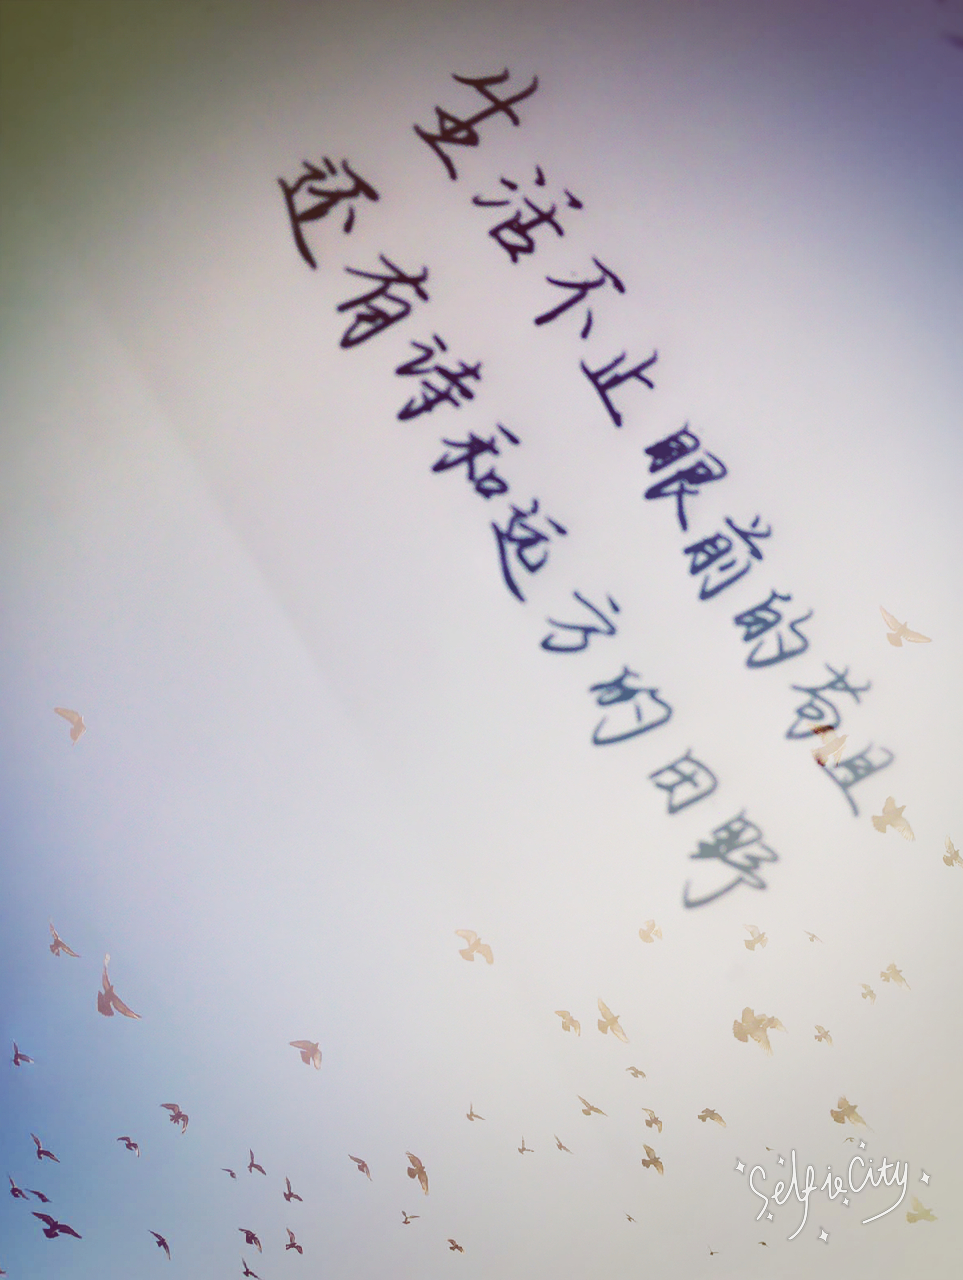 生活不止眼前的苟且
还有诗和远方的田野
SelfieCity